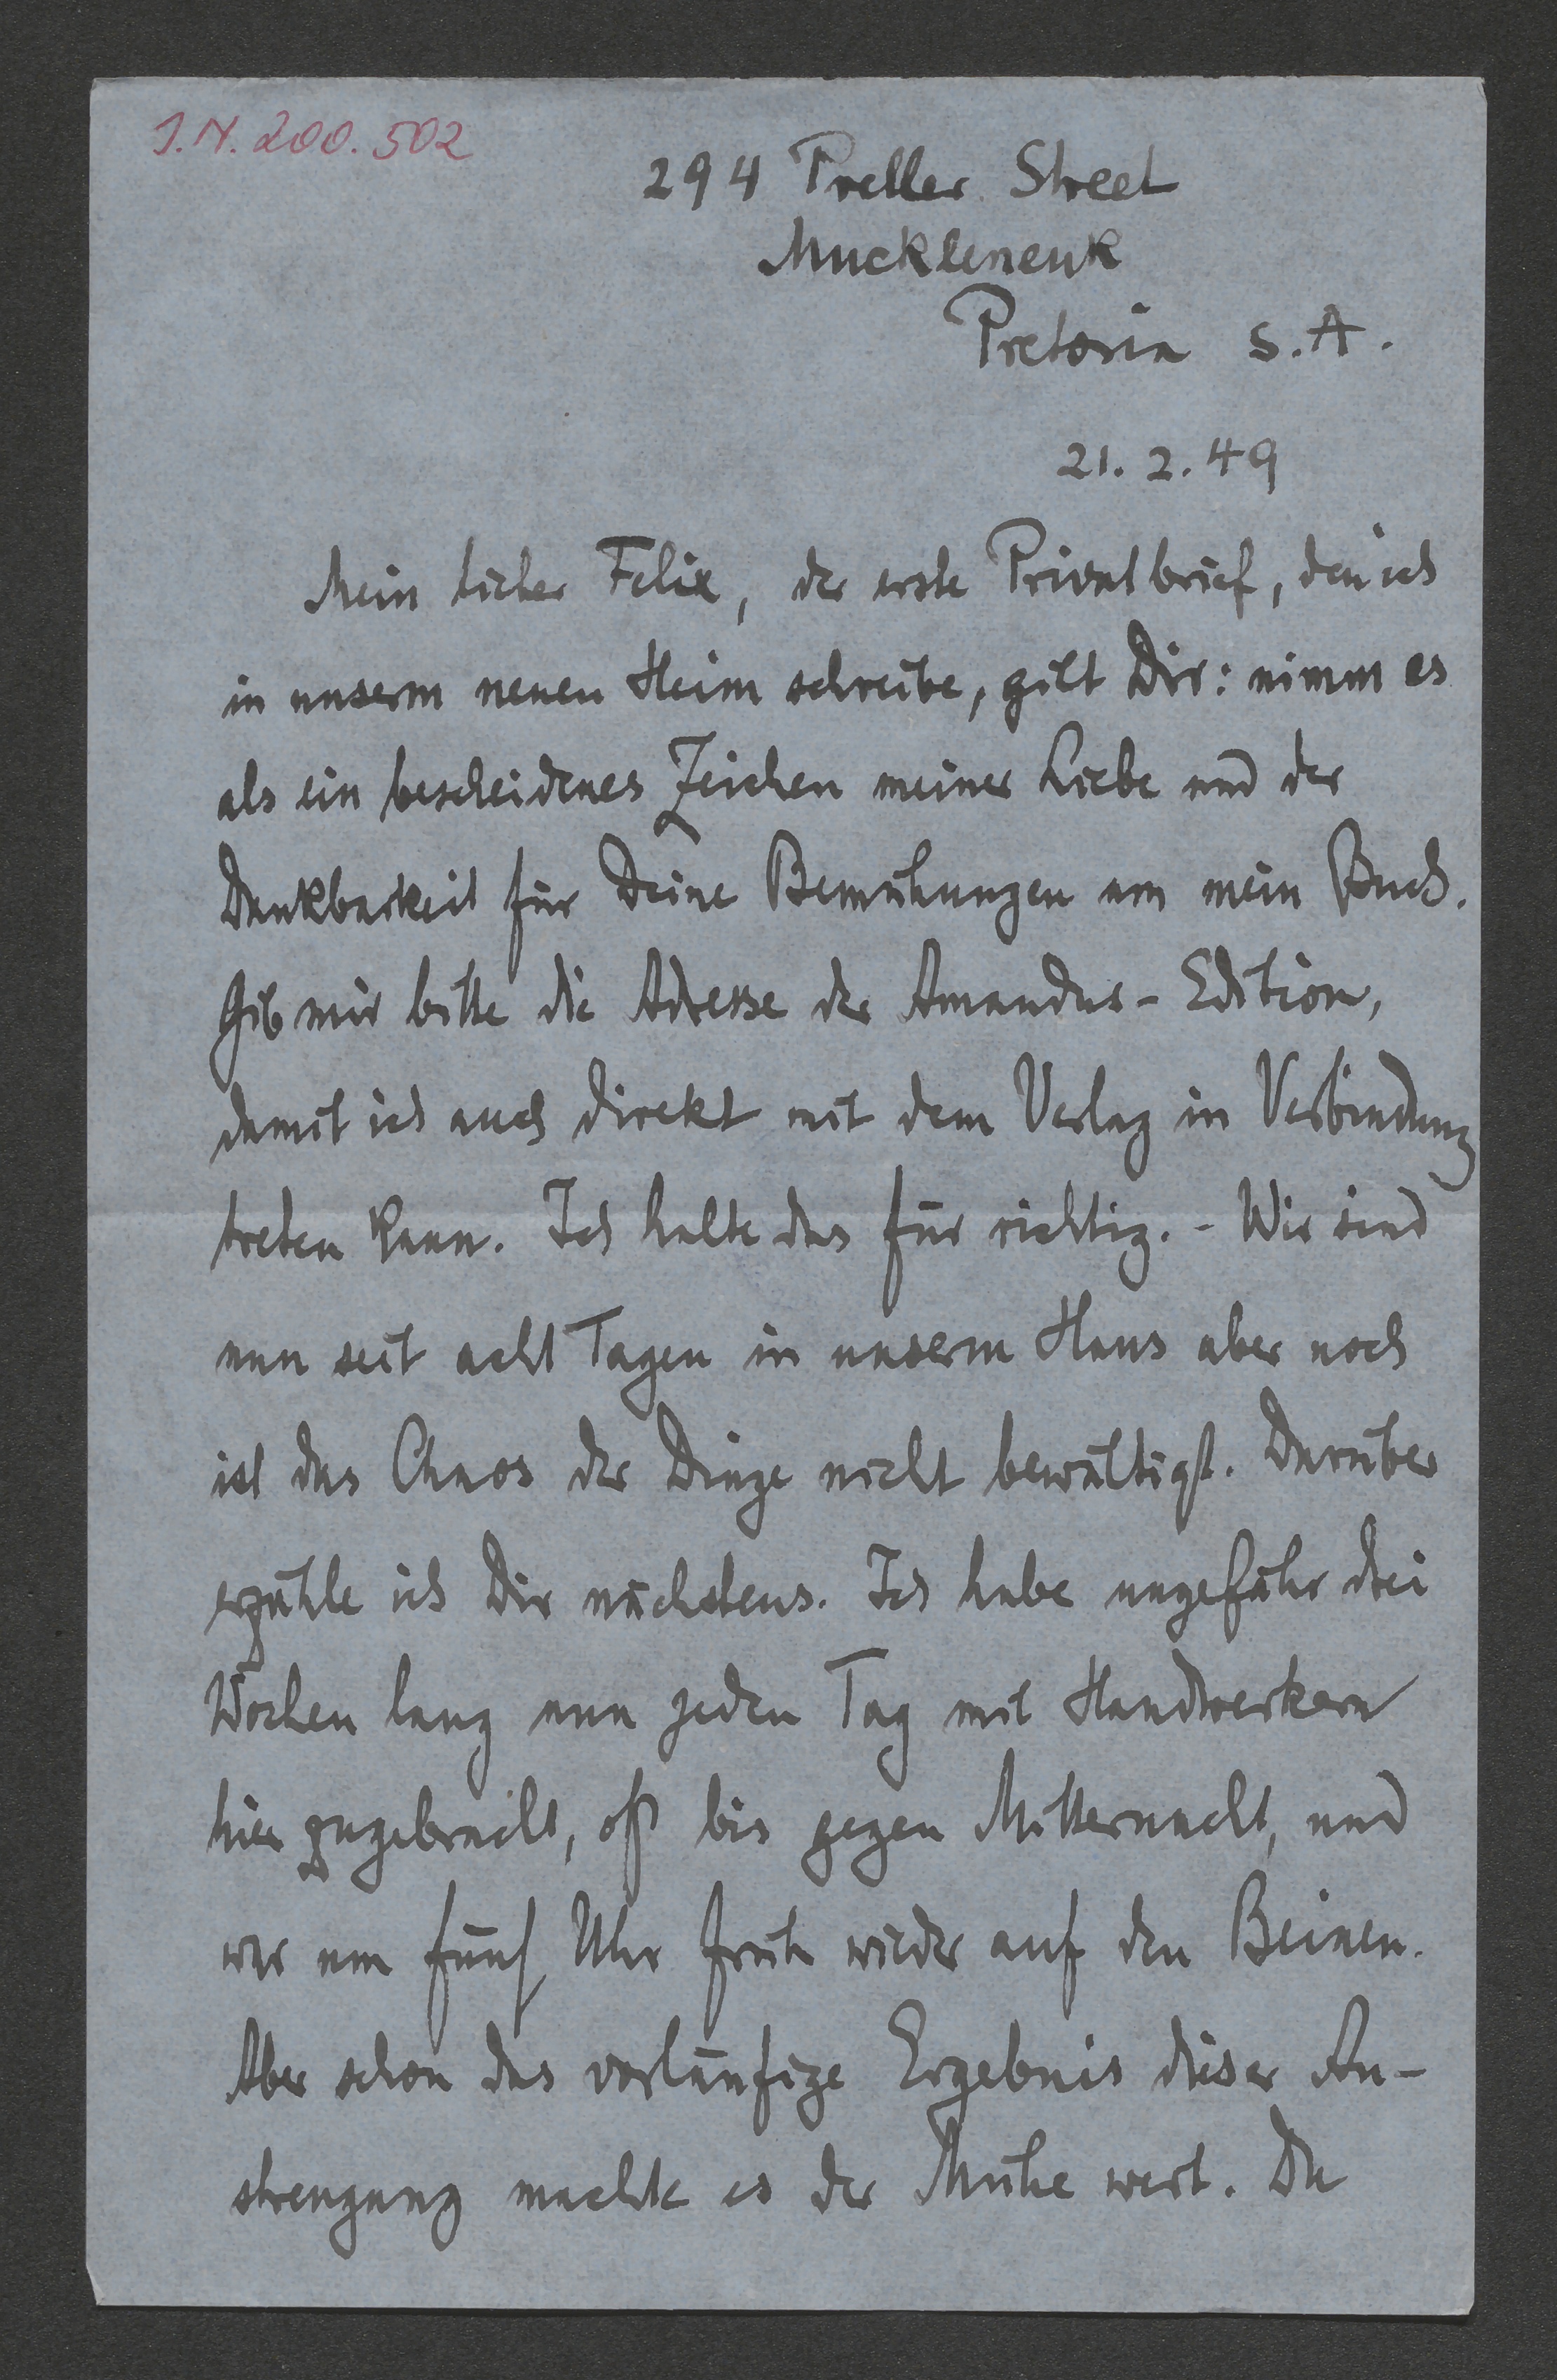 J.N. 200.502
294 Preller Street
Muckleneuk
Pretoria S.A.
21.2.49
Mein lieber Felix, der erste Privatbrief, den ich
in unserm neuen Heim schreibe, gilt Dir: nimm es
als ein bescheidenes Zeichen meiner Liebe und der
Dankbarkeit für Deine Bemühungen um mein Buch.
Gib mir bitte die Adresse der Amandus-Edition,
damit ich auch direkt mit dem Verlag in Verbindung
treten kann. Ich halte das für richtig. - Wir sind
nun seit acht Tagen in unserm Haus aber noch
ist das Chaos der Dinge nicht bewältigt. Darüber
erzähle ich Dir nächstens. Ich habe ungefähr drei
Wochen lang nun jeden Tag mit Handwerkern
hier zugebracht, oft bis gegen Mitternacht, und
war um fünf Uhr früh wieder auf den Beinen.
Aber schon das vorläufige Ergebnis dieser An-
strengung machte es der Mühe wert. Du